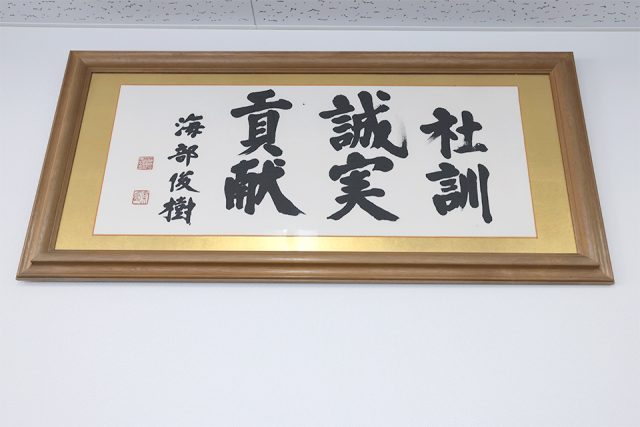 社訓
誠実
貢献
海部俊樹